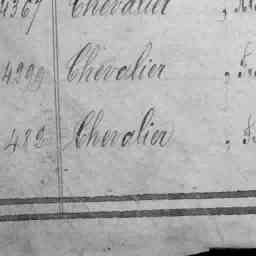 4367 Chevalier
4299 Chevalier
482 Chevalier